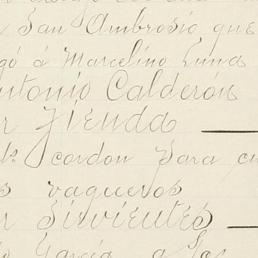 San Ambrosio que
gó á Marcelino Luna
Antonio Calderón
r Tienda
cordon para cu
s vaqueros
r Sirvientes
García